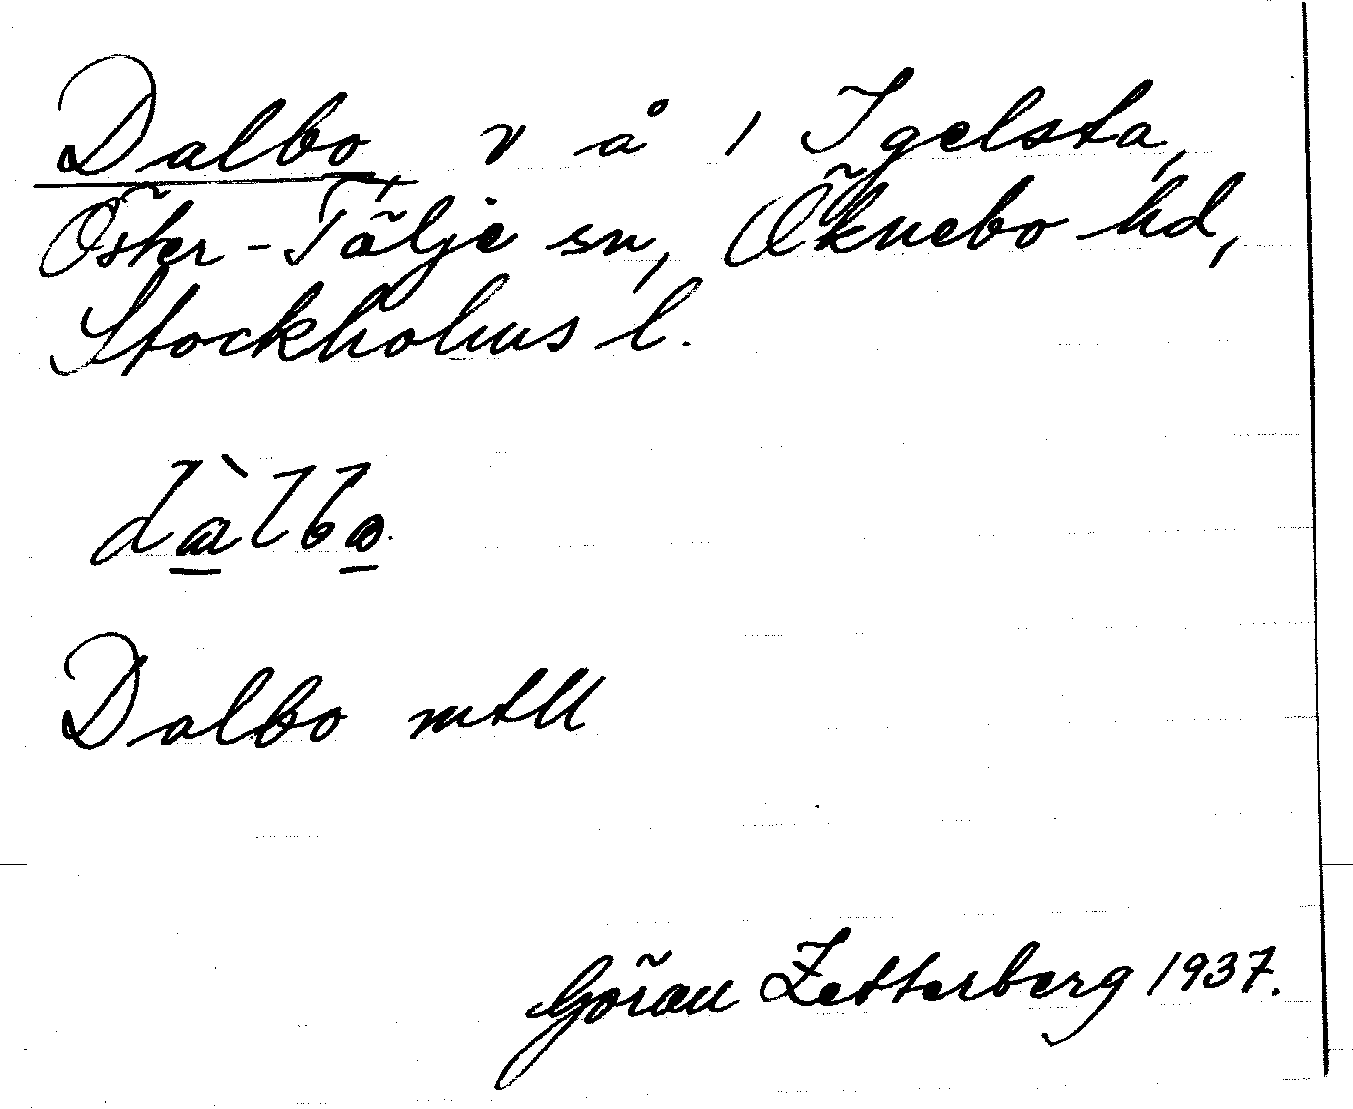 Dalbo, v å i Igelsta,
Öster-Tälje sn, Öknebo hd,
Stockholms l.
dàlbo.
Dalbo mtll
Göran Zetterberg 1937.